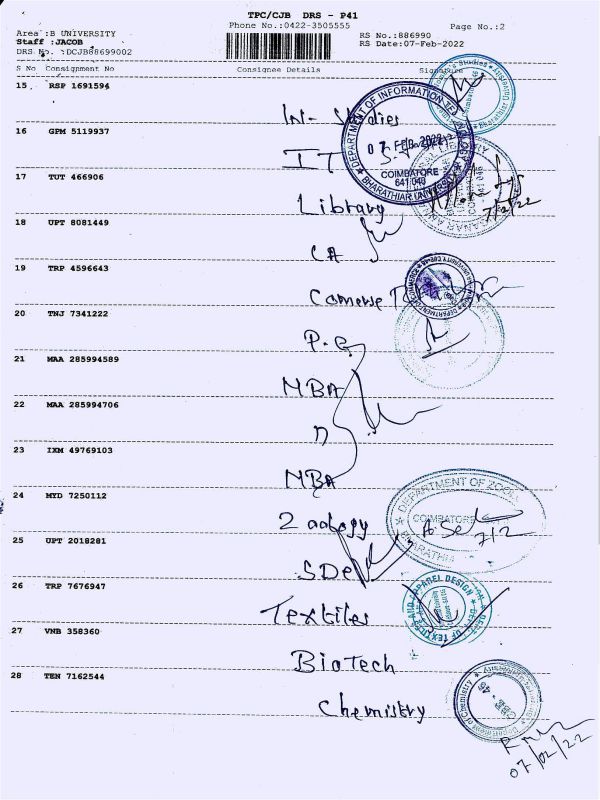 TPC/CJB DRS - P41
Phone No.:0422-3505555
Page No.:2
Area :B UNIVERSITY
Staff :JACOB
DRS No. :DCJB88699002
RS No.:886990
RS Date:07-Feb-2022
S No Consignment No Consignee Details Signature
15 RSP 1691594
In- Studies
16 GPM 5119937
IT
17 TUT 466906
Library
18 UPT 8081449
CA
19 TRP 4596643
20 TNJ 7341222
P.G
21 MAA 285994589
MBA
22 MAA 285994706
23 IXM 49769103
MBA
24 MYD 7250112
Zoology
25 UPT 2018281
26 TRP 7676947
Textiles
27 VNB 358360
BioTech
28 TEN 7162544
Chemistry
DEPARTMENT OF INFORMATION TECHNOLOGY
07 FEB 2022
COIMBATORE
641 046
BHARATHIAR UNIVERSITY
7/2/22
DEPARTMENT OF ZOOLOGY
COIMBATORE
7/2
AND APPAREL DESIGN
DEPT. OF TEXTILES
Department of Chemistry
CBE - 46
07/02/22